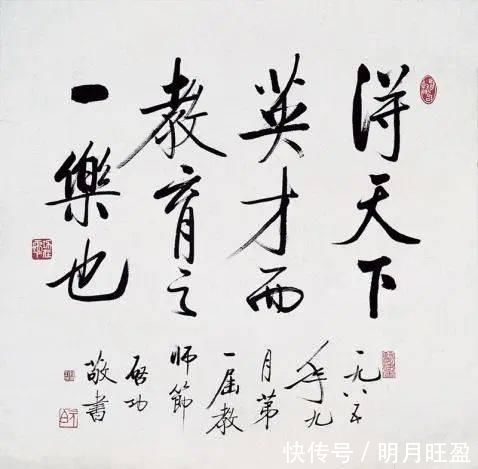 得天下
英才而
教育之
一樂也
一九八五
年九
月第
一届教
師節
啓功
敬書
快传号 / 明月旺盈